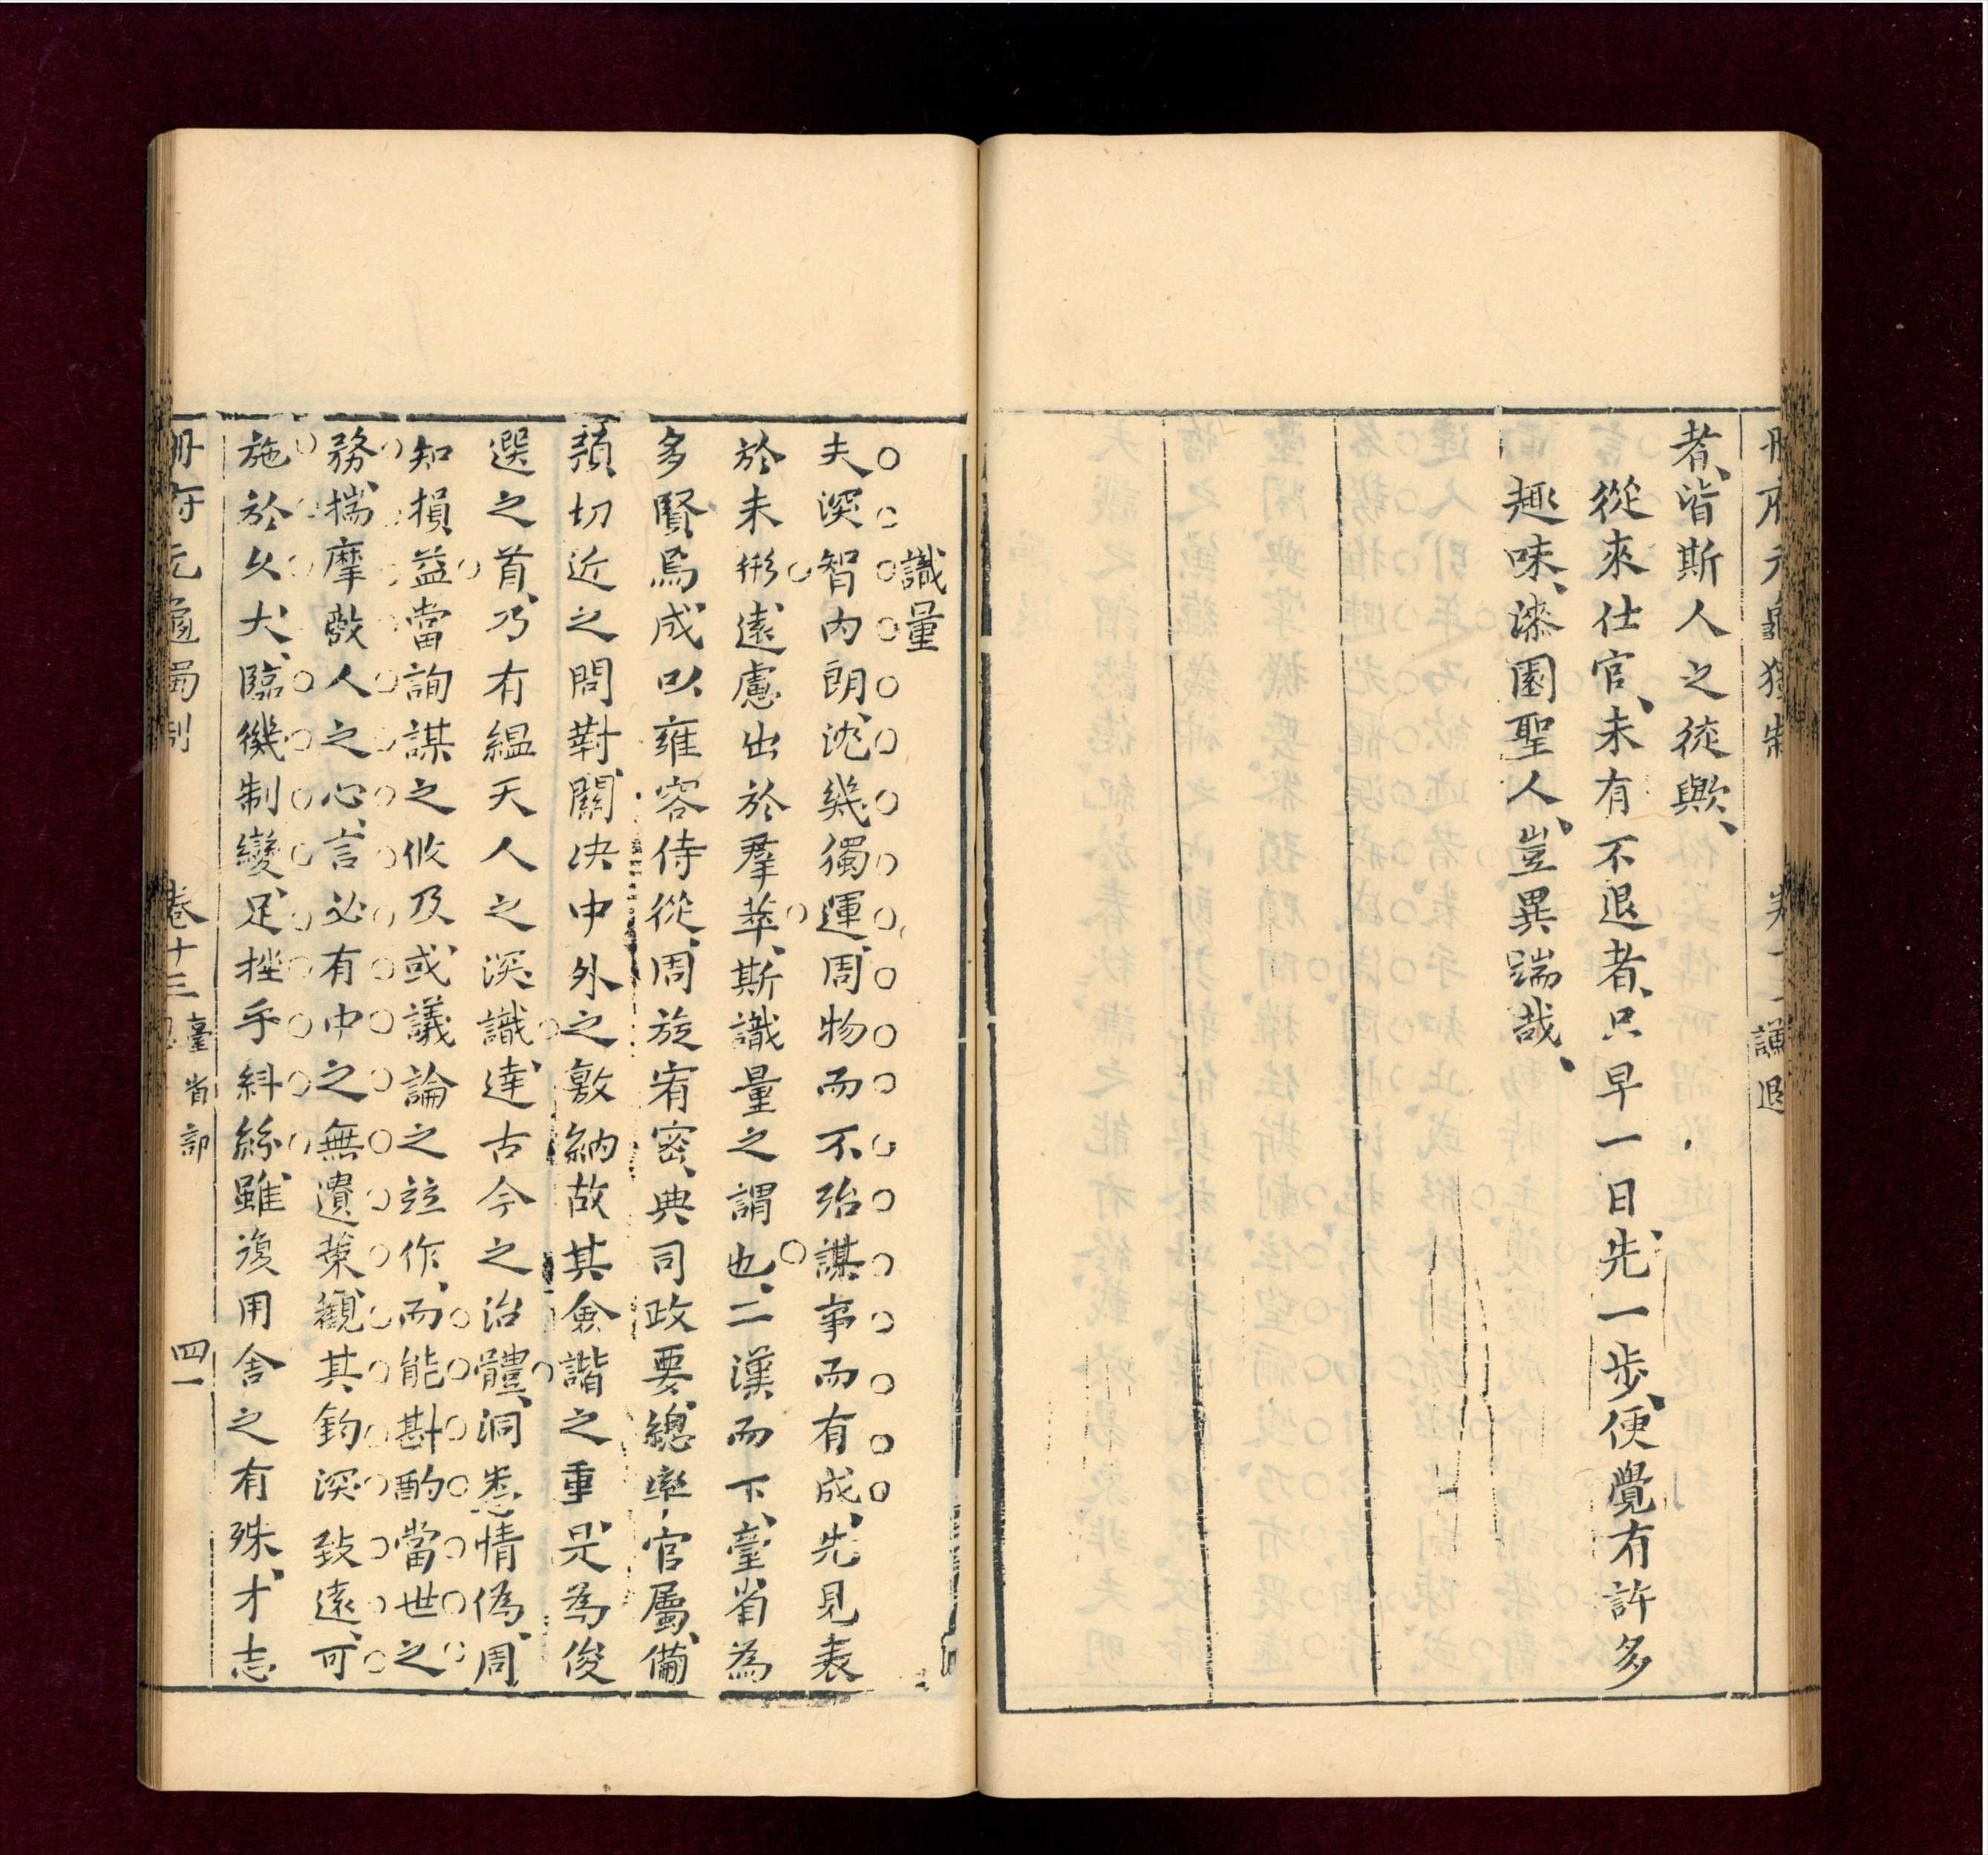 冊府元龜獨制
謙退
者、皆斯人之徒歟、
從來仕官、未有不退者、只早一日、先一步、便覺有許多
趣味、漆園聖人、豈異端哉、
識量
夫深智內朗、沈幾獨運、周物而不殆、謀事而有成、先見表
於未形、遠慮出於羣萃、斯識量之謂也、二漢而下、臺省為
多賢焉、成以雍容侍從、周旋宥密、典司政要、總率官屬、備
預切近之問對、關決中外之敷納、故其僉諧之重、是為俊
選之首、乃有緼天人之深識、達古今之治體、洞悉情偽、周
知損益、當詢謀之攸及、或議論之竝作、而能斟酌當世之
務、揣摩敵人之心、言必有中之無遺策、觀其鉤深致遠、可
施於久大、臨機制變、足挫乎糾紛、雖復用舍之有殊、才志
冊府元龜獨制
卷十三
臺省部
四一